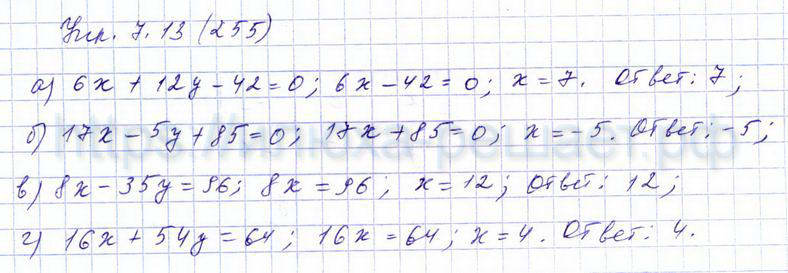 Упр. 7.13 (255)
а) 6x + 12y - 42 = 0; 6x - 42 = 0; x = 7. Ответ: 7;
б) 17x - 5y + 85 = 0; 17x + 85 = 0; x = -5. Ответ: -5;
в) 8x - 35y = 96; 8x = 96; x = 12; Ответ: 12;
г) 16x + 54y = 64; 16x = 64; x = 4. Ответ: 4.